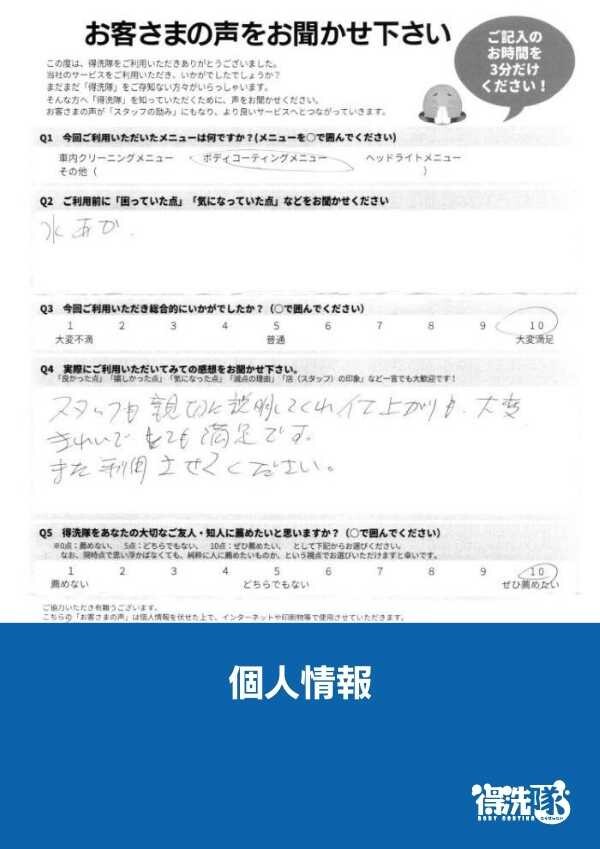 お客さまの声をお聞かせ下さい
ご記入の
お時間を
3分だけ
ください！
この度は、得洗隊をご利用いただきありがとうございました。
当社のサービスをご利用いただき、いかがでしたでしょうか？
まだまだ「得洗隊」をご存知ない方々がいらっしゃいます。
そんな方へ「得洗隊」を知っていただくために、声をお聞かせください。
お客さまの声が「スタッフの励み」にもなり、より良いサービスへとつながっていきます。
Q1 今回ご利用いただいたメニューは何ですか？(メニューを〇で囲んでください)
車内クリーニングメニュー ボディコーティングメニュー ヘッドライトメニュー
その他（ ）
Q2 ご利用前に「困っていた点」「気になっていた点」などをお聞かせください
水あか.
Q3 今回ご利用いただき総合的にいかがでしたか？（〇で囲んでください）
1 2 3 4 5 6 7 8 9 10
大変不満 普通 大変満足
Q4 実際にご利用いただいてみての感想をお聞かせ下さい。
「良かった点」「嬉しかった点」「気になった点」「減点の理由」「店（スタッフ）の印象」など一言でも大歓迎です！
スタッフも親切に説明してくれ仕上がりも、大変
きれいでとても満足です。
また利用させてください。
Q5 得洗隊をあなたの大切なご友人・知人に薦めたいと思いますか？（〇で囲んでください）
※0点：薦めない、 5点：どちらでもない、 10点：ぜひ薦めたい、 として下記からお選びください。
なお、現時点で思い浮かばなくても、純粋に人に薦めたいものか、という視点でお選びいただけますと幸いです。
1 2 3 4 5 6 7 8 9 10
薦めない どちらでもない ぜひ薦めたい
ご協力いただき有難うございます。
こちらの「お客さまの声」は個人情報を伏せた上で、インターネットや印刷物等で使用させていただきます。
個人情報
得洗隊
BODY COATING